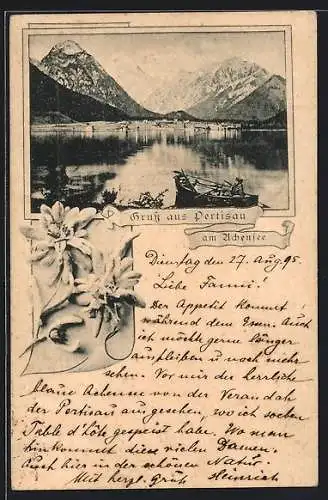 Gruß aus Pertisau
am Achensee
Dienstag den 27. Aug. 95.
Liebe Fanni!
Der Appetit kommt
während dem Essen. Auch
ich möchte gerne länger
ausbleiben u noch mehr
sehen. Vor mir der herrliche
blaue Achensee von der Verandah
der Pertisau aus gesehen, wo ich soeben
Table d'hôte gespeist habe. Wo man
hinkommt diese vielen Damen.
Auch hier in der schönen Natur.
Mit herzl. Gruß Heinrich